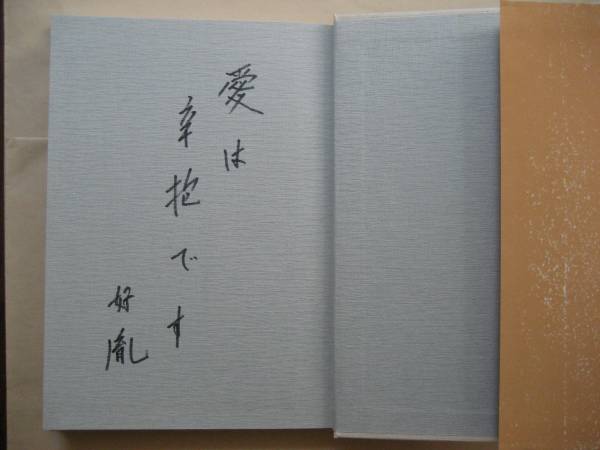 愛は
辛抱です
好胤